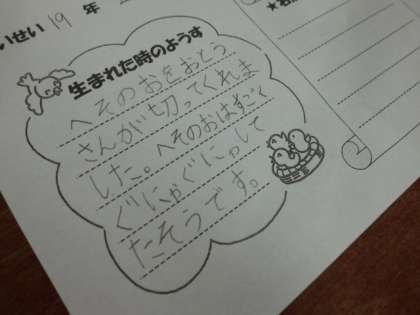 いせい 19 年
生まれた時のようす
へそのおをおとう
さんが切ってくれま
した。へそのおはすごく
ぐにゃぐにゃして
たそうです。